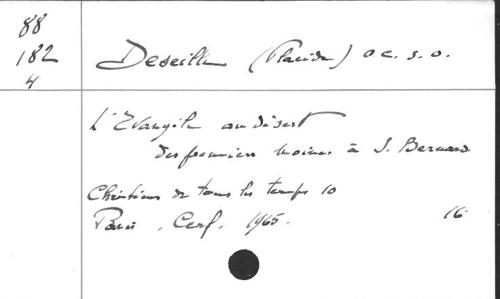 88
182
4
Deseille (Placide) o.c.s.o.
L'Evangile au désert
des premiers moines à S. Bernard
Chrétiens de tous les temps 10
Paris. Cerf. 1965.
16